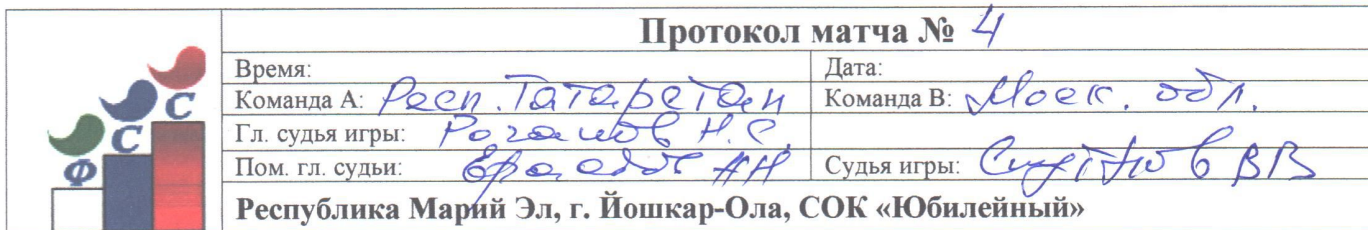 Протокол матча № 4
Время: Дата:
Команда А: Респ. Татарстан Команда В: Моск. обл.
Гл. судья игры: Н.С.
Пом. гл. судьи: Судья игры: ВВ
Республика Марий Эл, г. Йошкар-Ола, СОК «Юбилейный»
Ф С С